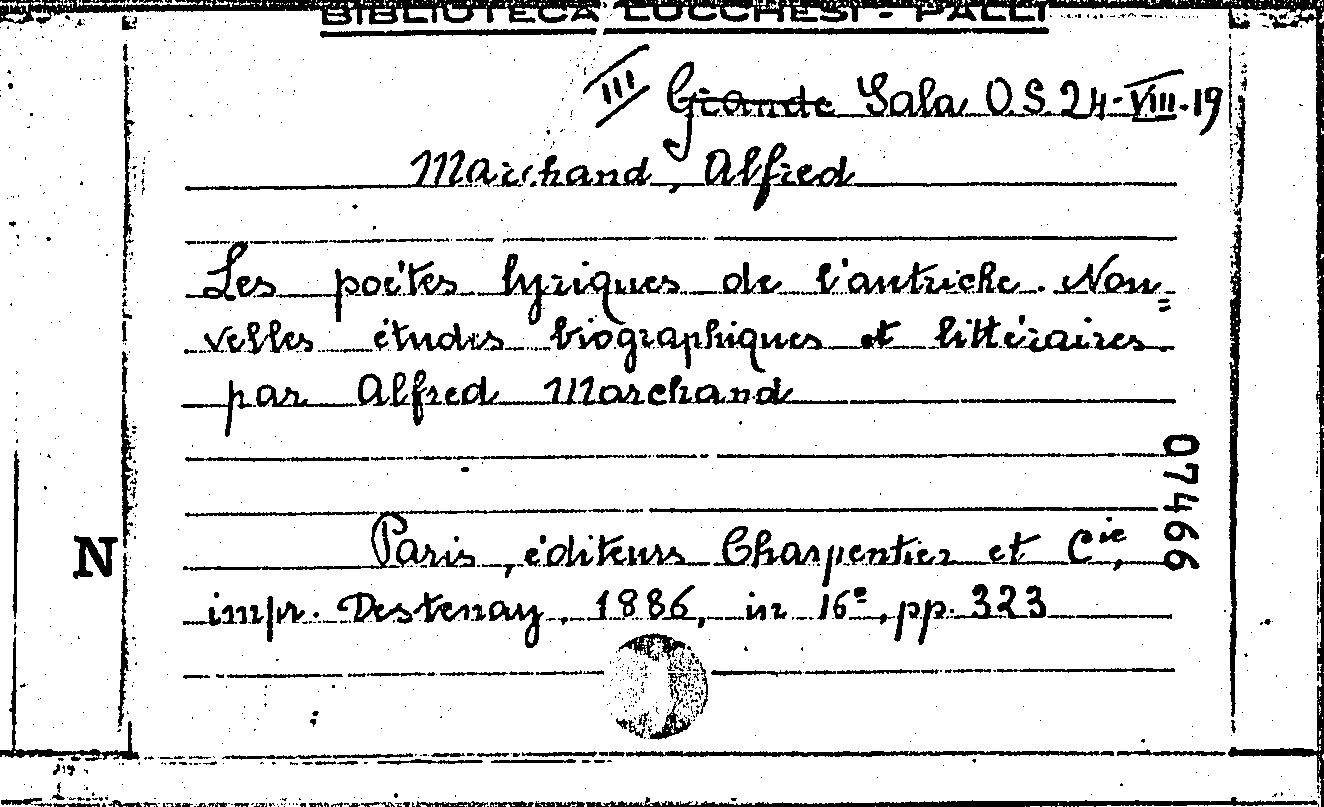 BIBLIOTECA LUCCHESI - PALLI
III Grande Sala O.S. 24-VIII-19
Marchand, Alfred
Les poètes lyriques de l'autriche. Nou=
velles études biographiques et littéraires
par Alfred Marchand
07466
N
Paris, éditeurs Charpentier et Cie,
impr. Destenay, 1886, in 16º, pp. 323